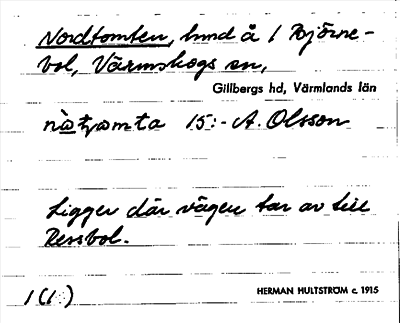 Nordtomten, hmd å / Björne-
bol, Värmskogs sn,
Gillbergs hd, Värmlands län
15:- A. Olsson
Ligger där vägen tar av till
Persbol.
1(1:)
HERMAN HULTSTRÖM c. 1915